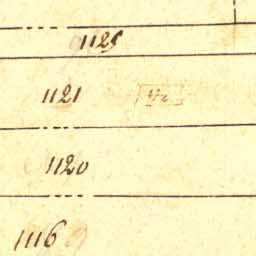 1125
1121
1120
1116